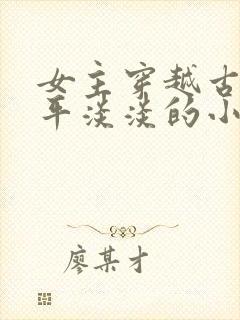 女主穿越古
平淡淡的小
廖某才